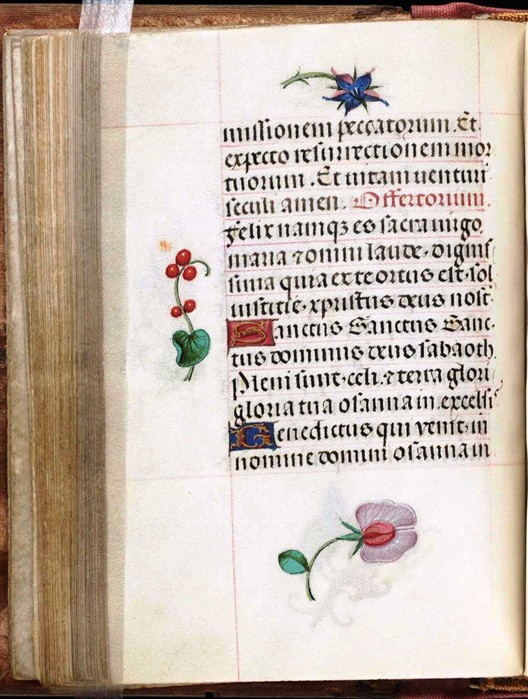 missionem peccatorum. Et
expecto resurrectionem mor
tuorum. Et vitam venturi
seculi amen. Offertorium.
Felix namqȝ es sacra virgo
maria ⁊ omni laude dignis
sima quia ex te ortus est sol
iusticie xpristus deus nost
Sanctus Sanctus Sanc
tus dominus deus sabaoth
Pleni sunt celi ⁊ terra glori
gloria tua osanna in excelsi
Benedictus qui venit in
nomine domini osanna in